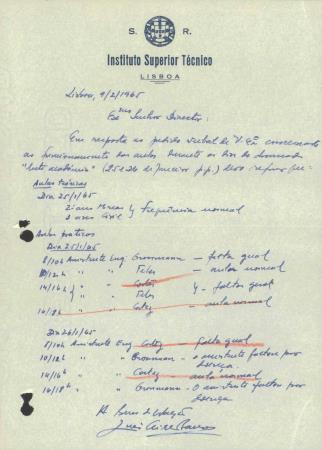 S. R.
Instituto Superior Técnico
LISBOA
Lisboa, 9/2/1965
Exmo Senhor Director:
Em resposta ao pedido verbal de V. Exª
ao funcionamento das aulas durante os dias do chamado
"luto académico" (25 e 26 de Janeiro p.p.) devo
Aulas teóricas
Dia 25/1/65
2º ano Minas Frequência normal
3º ano Civil
Aulas práticas
Dia 25/1/65
8/10h Assistente Eng. Grossmann - falta geral
10/12h " Teles - aula normal
14/16h " Cortez
" Teles - falta geral
16/18h " Cortez - aula normal
Dia 26/1/65
8/10h Assistente Eng. Cortez - falta geral
10/12h " " Grossmann - o assistente faltou por
doença.
14/16h " " Cortez - aula normal
16/18h " " Grossmann - o assistente faltou por
doença
A Bem da Nação